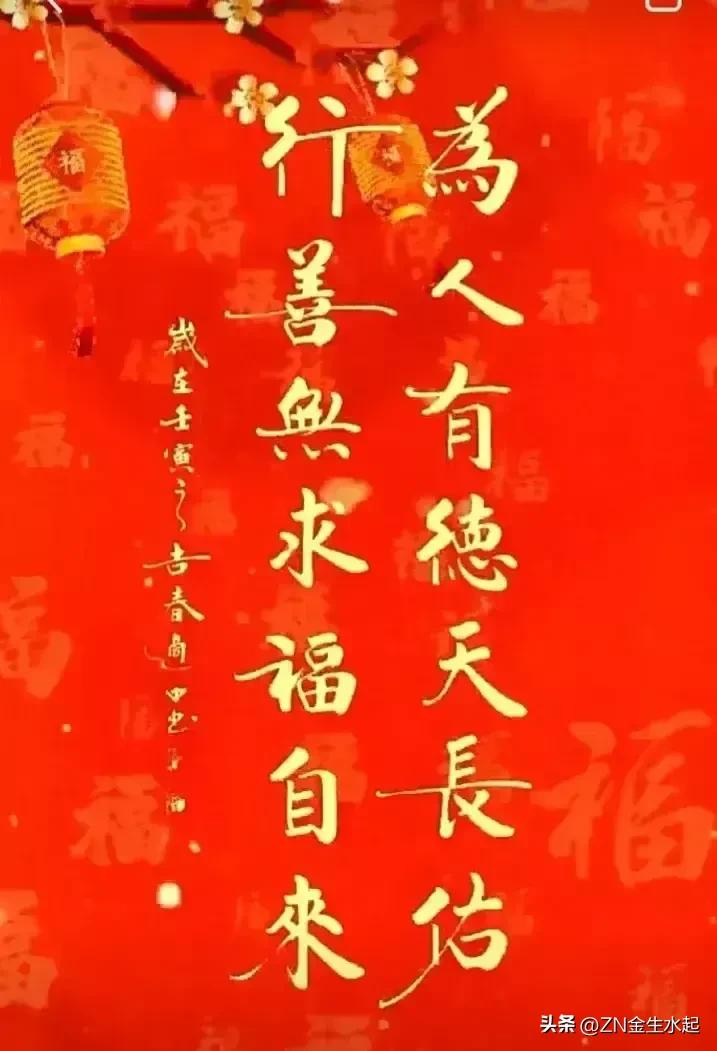 為人有德天長佑
行善無求福自來
歲在壬寅之吉春
福
福
头条 @ZN金生水起